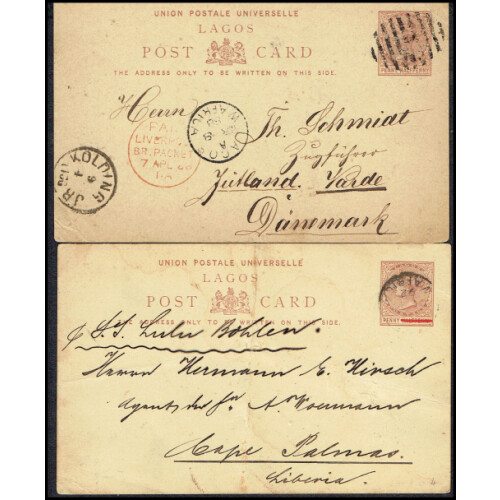 UNION POSTALE UNIVERSELLE
LAGOS
POST CARD
THE ADDRESS ONLY TO BE WRITTEN ON THIS SIDE.
PENNY HALFPENNY
Herrn
Th. Schmidt
Zugführer
Jütland. Varde
Dänemark
LAGOS
W. AFRICA
PAID
LIVERPOOL
BR. PACKET
7 AP
KOLDING
UNION POSTALE UNIVERSELLE
LAGOS
POST CARD
THE ADDRESS ONLY TO BE WRITTEN ON THIS SIDE.
PENNY
p S.S. Lulu Bohlen.
Herrn Hermann E. Hirsch
Agent der Fr A. Woermann
Cape Palmas.
Liberia.